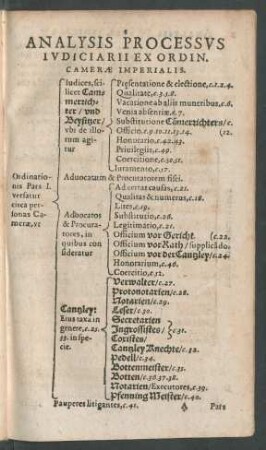 ANALYSIS PROCESSVS
IVDICIARII EX ORDIN.
CAMERÆ IMPERIALIS.
Ordinationis Pars I. versatur circa personas Cameræ, vt
Iudices, scilicet Cammerrichter / vnd Beysitzer / vbi de illorum agitur
Præsentatione & electione, c.1.2.4.
Qualitate, c.3.5.6.
Vacatione ab aliis muneribus, c.6.
Venia absentiæ, c.7.
Substitutione Camerrichters / c.
Officio, c.9.10.11.13.14. (12.
Honorario, c.42.43.
Priuilegiis, c.49.
Coercitione, c.50.51.
Iuramento, c.57.
Aduocatum & Procuratorem fisci.
Aduocatos & Procuratores, in quibus consideratur
Aduertat causis, c.21.
Qualitas & numerus, c.18.
Lites, c.19.
Substitutio, c.20.
Legitimatio, c.21.
Officium vor Gericht. (c.22.
Officium vor Rath / supplicādo.
Officium vor der Cantzley / c.24.
Honorarium, c.46.
Coercitio, c.52.
Cantzley: Eius taxa in genere, c.25. in specie.
Verwalter / c.27.
Protonotarien / c.28.
Notarien / c.29.
Leser / c.30.
Secretarien
Ingrossisten / c.31.
Copisten /
Cantzley Knechte / c.32.
Pedell / c.34.
Bottenmeister / c.35.
Botten / c.36.37.38.
Notarien / Executores, c.39.
Pfenning Meister / c.40.
Pauperes litigantes, c.41.
Pars